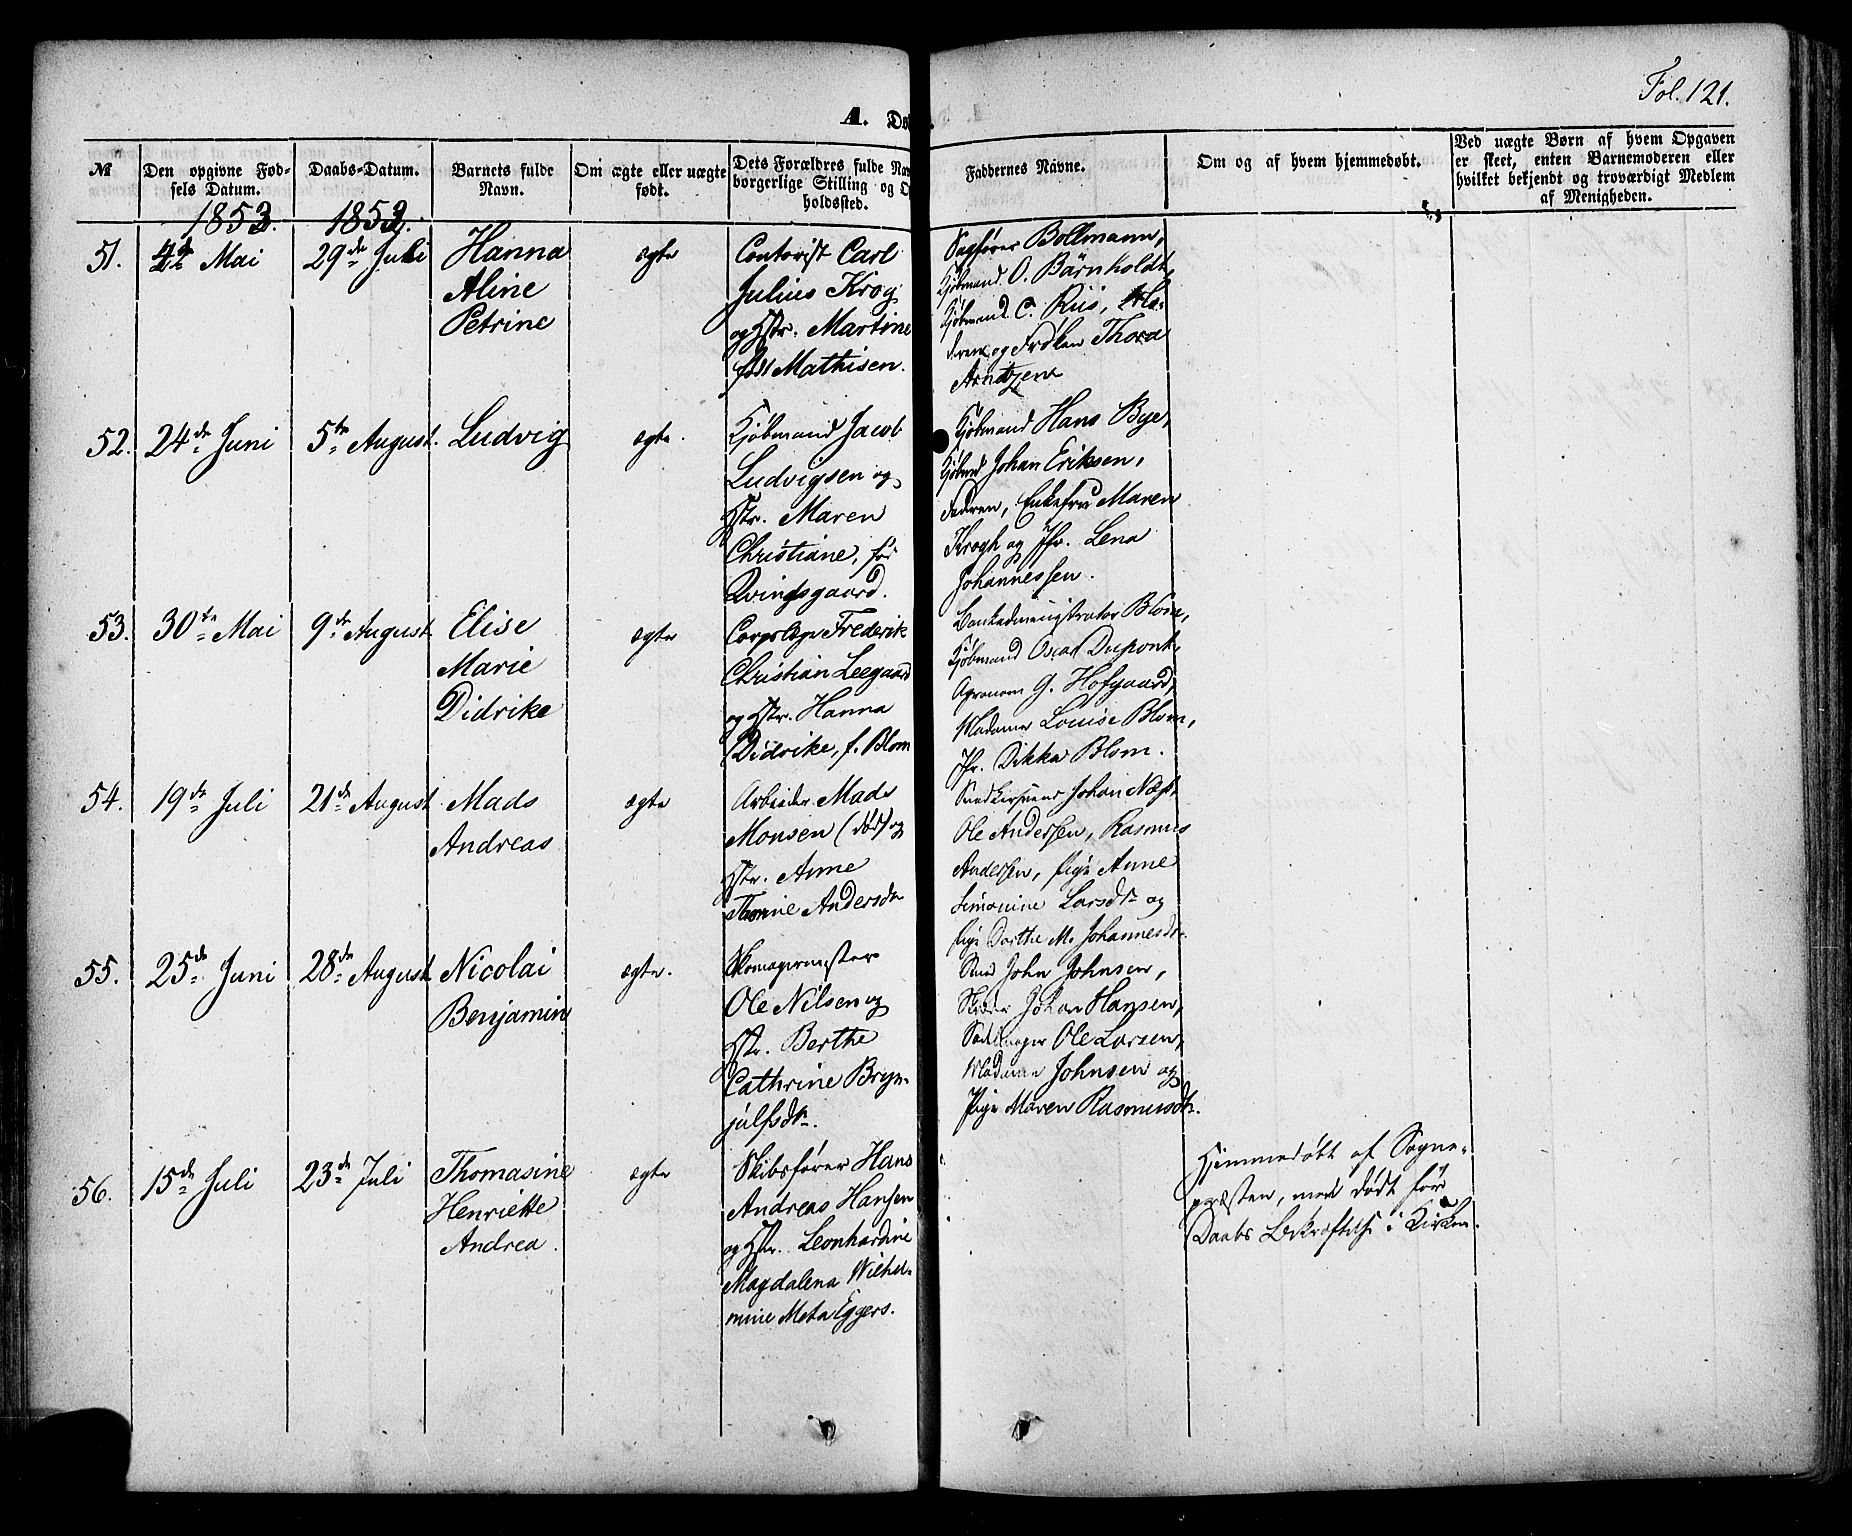 Fol. 121.
A.
№
Den opgivne Fød-
sels Datum.
Daabs-Datum.
Barnets fulde
Navn.
Om ægte eller uægte
født.
Dets Forældres fulde
borgerlige Stilling og
holdssted.
Faddernes Navne.
Om og af hvem hjemmedøbt.
Ved uægte Børn af hvem Opgaven
er skeet, enten Barnemoderen eller
hvilket bekjendt og troværdigt Medlem
af Menigheden.
1853.
1853.
51.
4de Mai
29de Juli
Hanna
Aline
Petrine
ægte
Contorist Carl
Julius Krog
og Hstr. Martine
født Mathisen.
Sagfører Bollmann,
Kjøbmand O. Bärnholdt,
Kjøbmand C. Riis,
og Frøken Thora
Arntzen
52.
24de Juni
5te August.
Ludvig
ægte.
Kjøbmand Jacob
Ludvigsen og
Hstr. Maren
Christiane, fød
Qvindsgaard.
Kjøbmand Hans Bye,
Kjøbmd Johan Eriksen,
Faderen, Enkefru Maren
Krogh og Jfr. Lena
Johannessen.
53.
30te Mai
9de August
Elise
Marie
Didrike
ægte
Corpslæge Frederik
Christian Leegaard
og Hstr. Hanna
Didrike, f. Blom
Bankadministrator Blom,
Kjøbmand Oscar Dupont,
Agronom G. Hofgaard,
Madame Louise Blom,
Jfr. Dikka Blom.
54.
19de Juli
21de August
Mads
Andreas
ægte
Arbeider Mads
Monsen (død) og
Hstr. Anne
Andersdr
Snedkersvend Johan Næss,
Ole Anderssen, Rasmus
Anderssen, Pige Anne
Simonine Larsdr og
Pige Dorthe M. Johannesdr.
55.
25de Juni
28de August
Nicolai
Benjamin
ægte.
Skomagermester
Ole Nilsen og
Hstr. Berthe
Cathrine Bryn-
julfsdr.
John Johnsen,
Johan Hansen,
Sadelmager Ole Larsen,
Madame Johnsen og
Pige Maren Rasmusdr.
56.
15de Juli
23de Juli
Thomasine
Henriette
Andrea.
ægte
Skibsfører Hans
Andreas Hansen
og Hstr. Leonhardine
Magdalena Wilhel-
mine Meta Eggers.
Hjemmedøbt af Sogne-
præsten, men død før
Daabs Bekræftelse i Kirken.